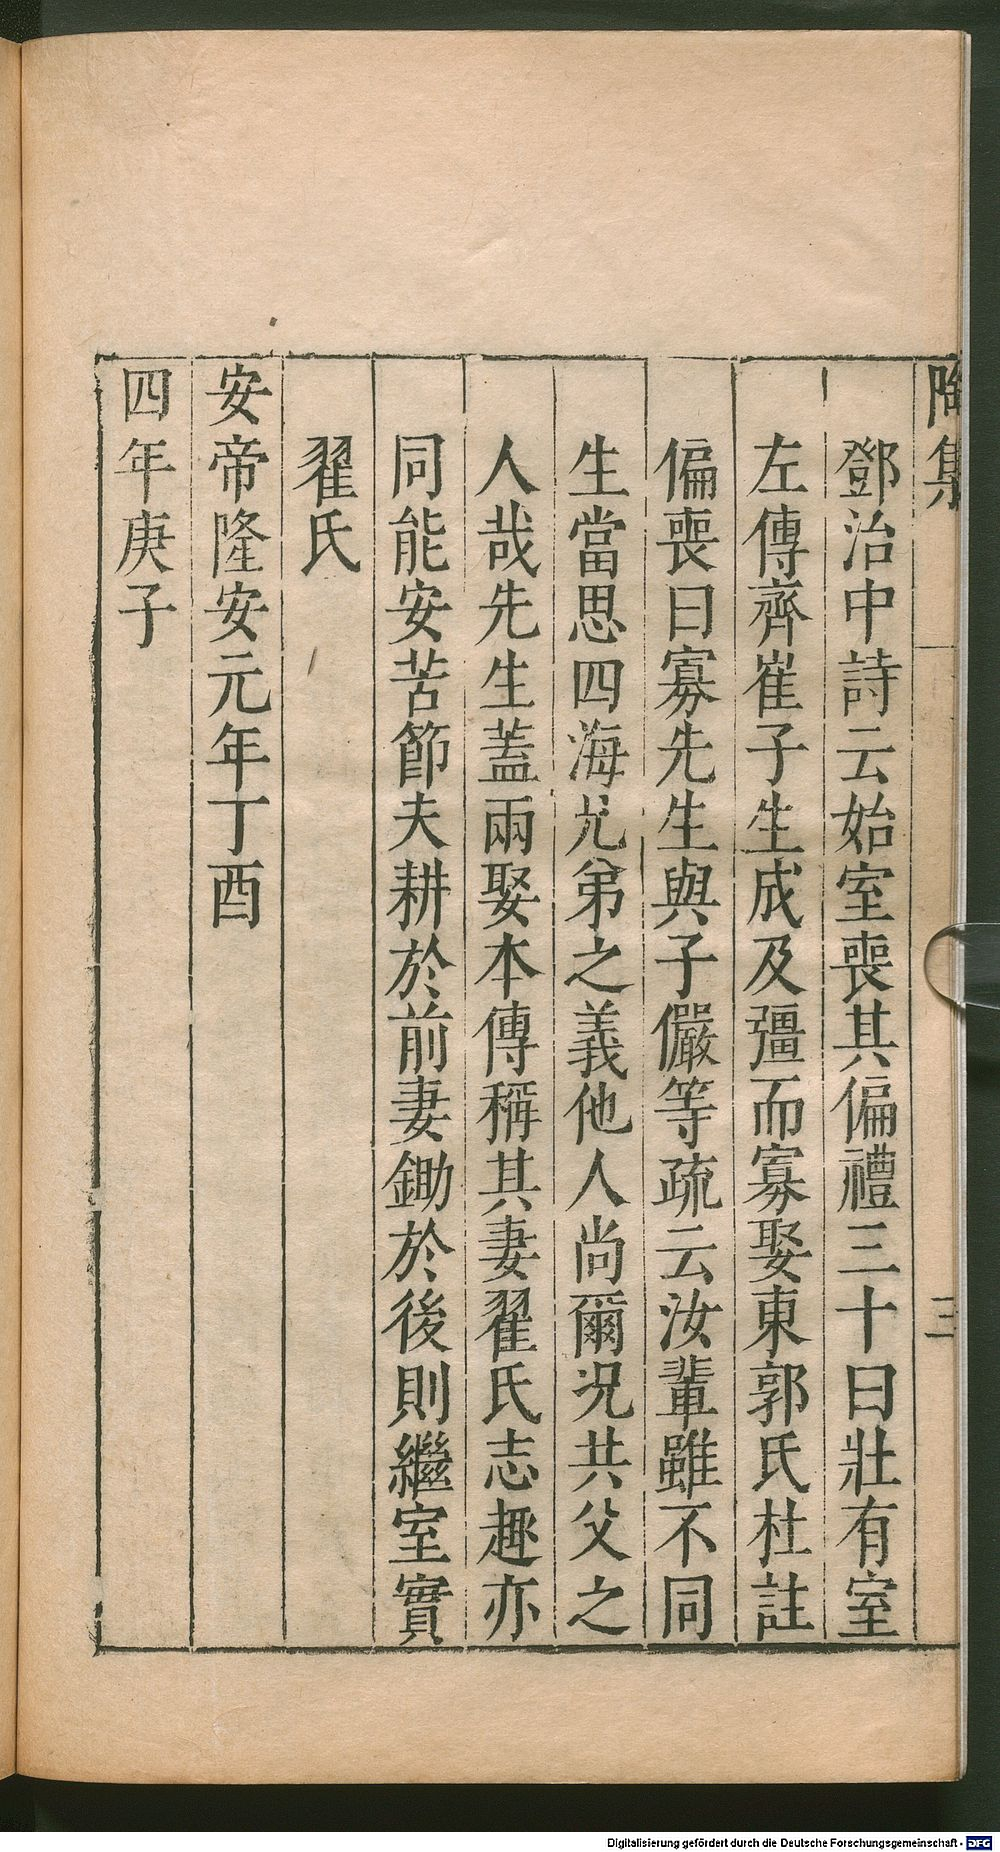 陶集
三
鄧治中詩云始室喪其偏禮三十曰壯有室
左傳齊崔子生成及彊而寡娶東郭氏杜註
偏喪曰寡先生與子儼等疏云汝輩雖不同
生當思四海尤弟之義他人尚爾况共父之
人哉先生蓋兩娶本傳稱其妻翟氏志趣亦
同能安苦節夫耕於前妻鋤於後則繼室實
翟氏
安帝隆安元年丁酉
四年庚子
Digitalisierung gefördert durch die Deutsche Forschungsgemeinschaft - DFG